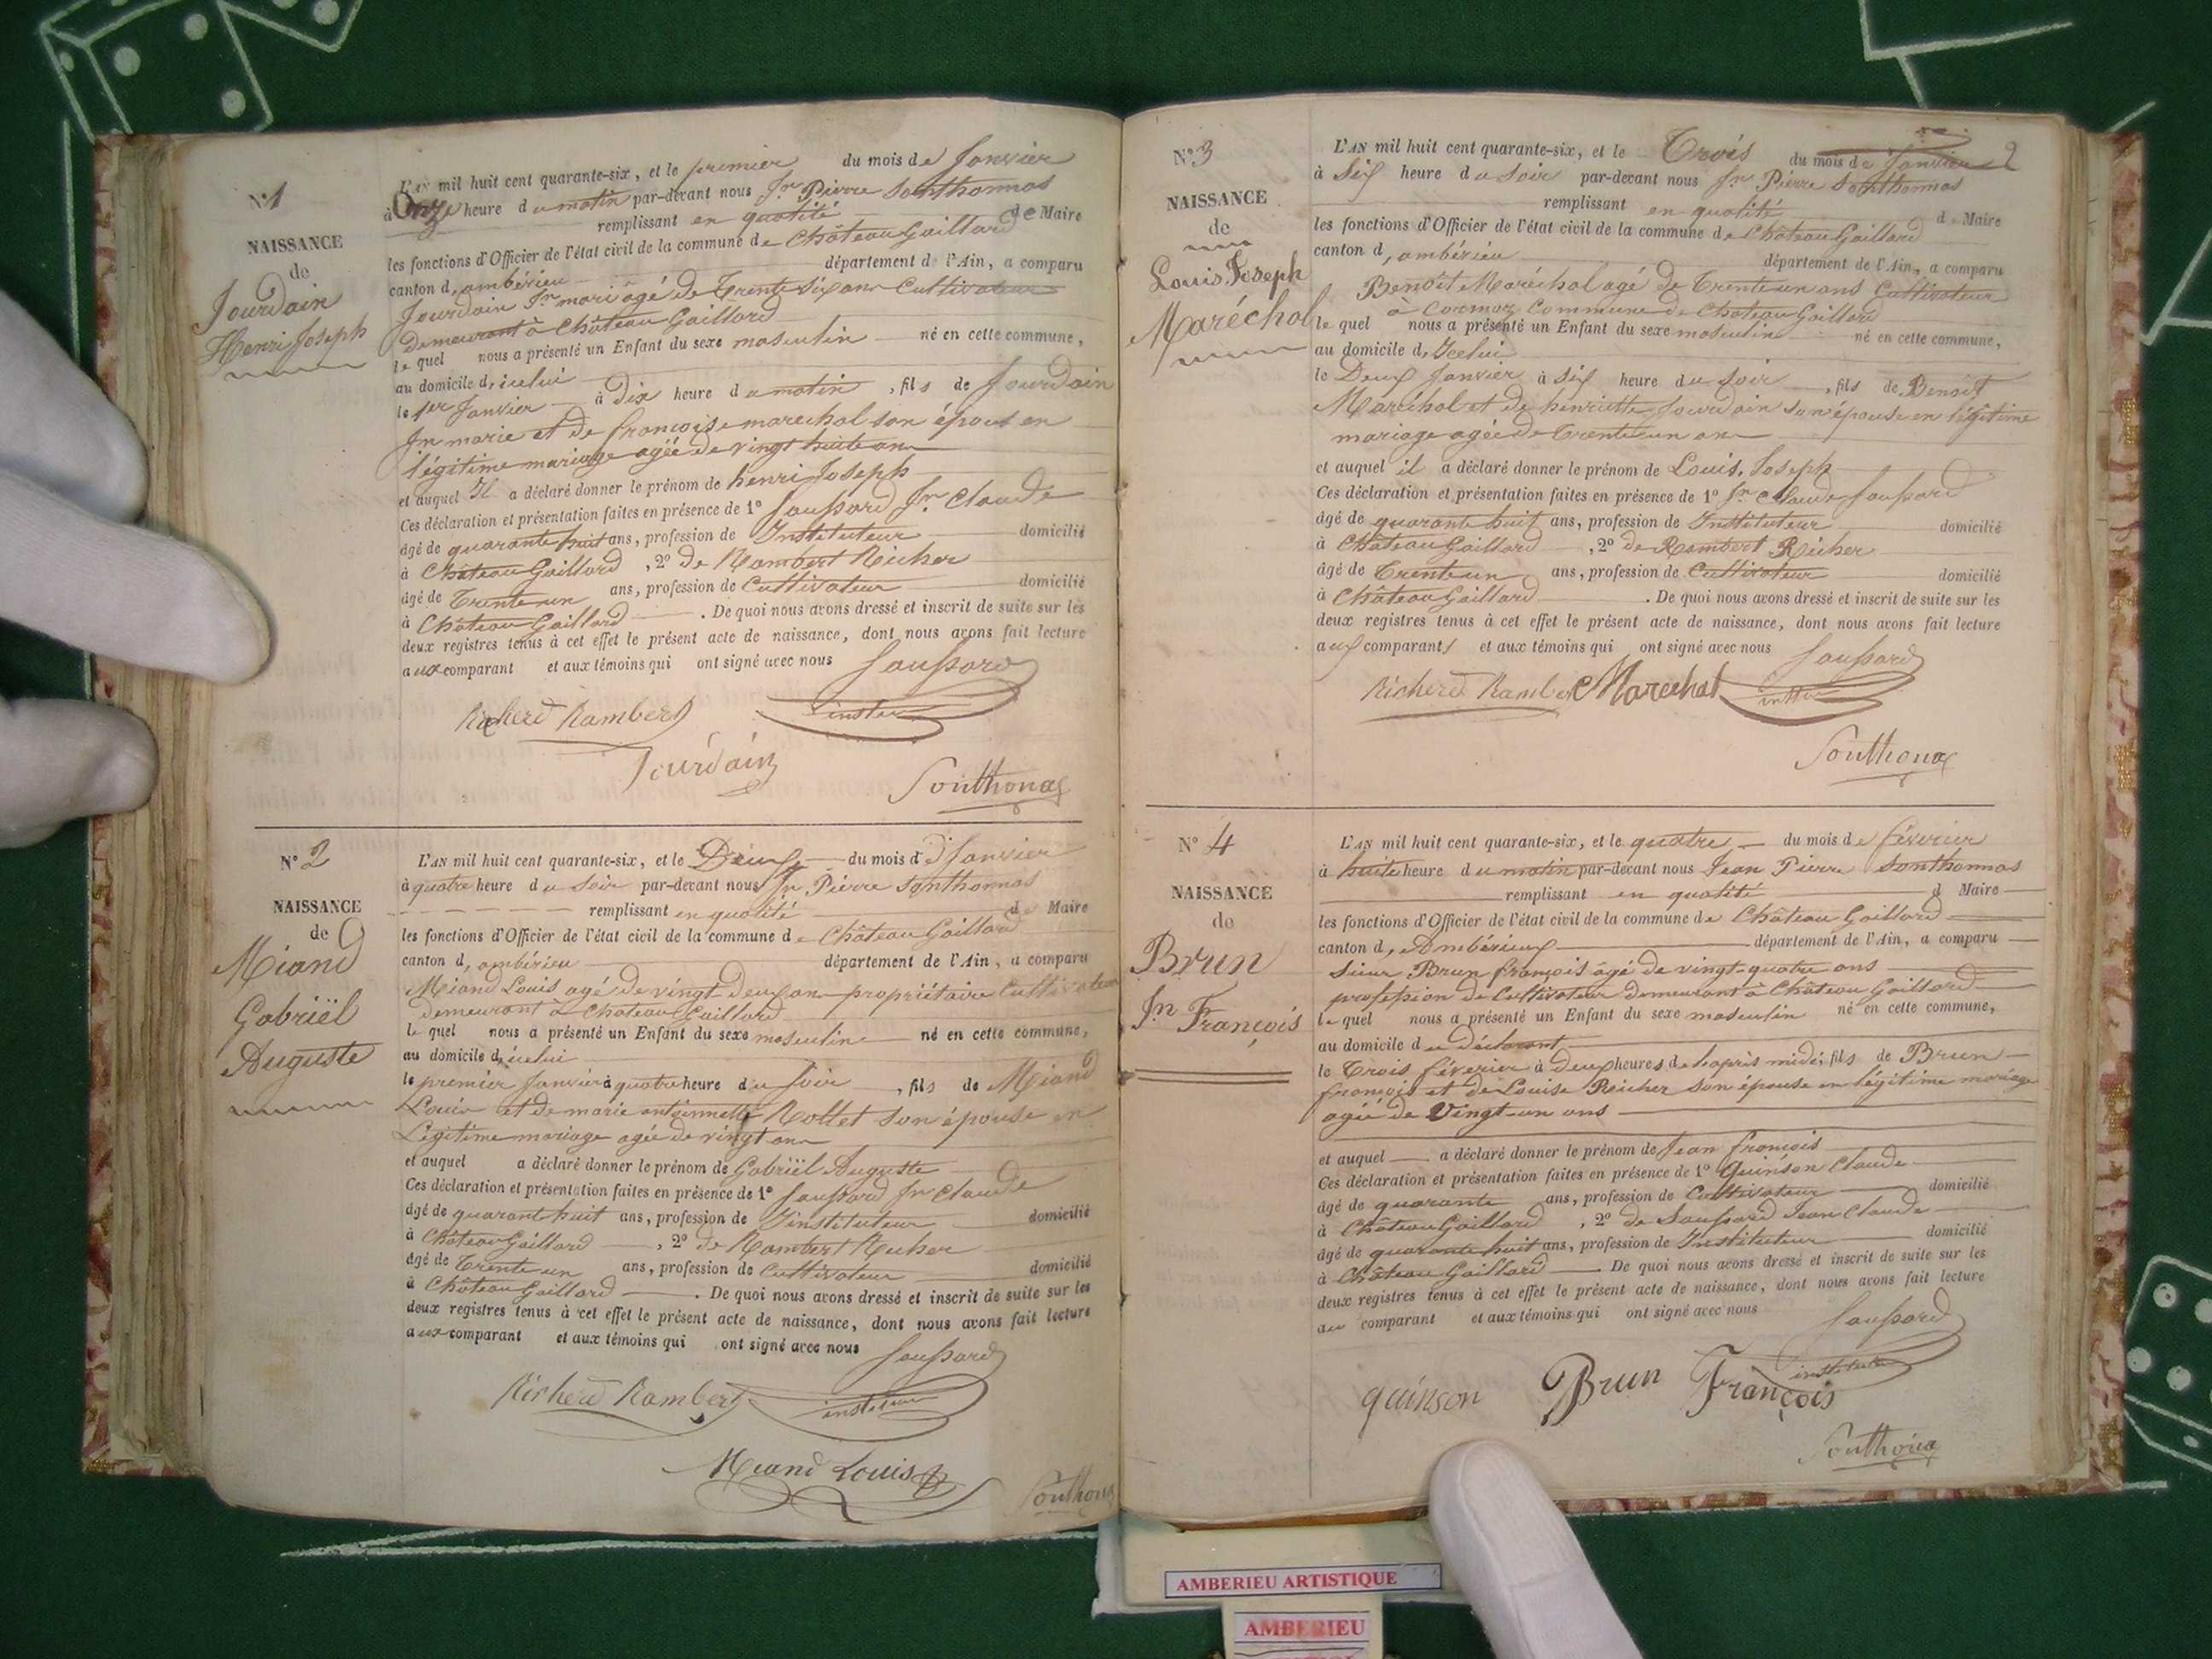 N° 1
NAISSANCE
de
Jourdain
Henri Joseph
L'AN mil huit cent quarante-six, et le premier du mois de Janvier
à Onze heure du matin par-devant nous Jn Pierre Sonthonnas
remplissant en qualité de Maire
les fonctions d'Officier de l'état civil de la commune de Château Gaillard
canton d, ambérieu département de l'Ain, a comparu
Jourdain Jn mari âgé de Trente six ans Cultivateur
demeurant à Château Gaillard
le quel nous a présenté un Enfant du sexe masculin né en cette commune,
au domicile d, icelui
le 1er Janvier à Dix heure du matin, fils de Jourdain
Jn marie et de françoise marechal son épouse en
légitime mariage agée de vingt huite ans
et auquel Il a déclaré donner le prénom de henri Joseph
Ces déclaration et présentation faites en présence de 1° Saussard Jn Claude
âgé de quarante huit ans, profession de Instituteur domicilié
à Château Gaillard, 2° de Rambert Richer
âgé de Trente un ans, profession de Cultivateur domicilié
à Château Gaillard. De quoi nous avons dressé et inscrit de suite sur les
deux registres tenus à cet effet le présent acte de naissance, dont nous avons fait lecture
aux comparant et aux témoins qui ont signé avec nous Saussard
Richerd Rambert
Jourdain
Sonthonax
N° 2
NAISSANCE
de
Miand
Gabriël
Auguste
L'AN mil huit cent quarante-six, et le Deux du mois d Janvier
à quatre heure du Soir par-devant nous Jn Pierre Sonthonnas
remplissant en qualité de Maire
les fonctions d'Officier de l'état civil de la commune de Château Gaillard
canton d, ambérieu département de l'Ain, a comparu
Miand Louis agé de vingt-deux ans propriétaire Cultivateur
demeurant à Château Gaillard
le quel nous a présenté un Enfant du sexe masculin né en cette commune,
au domicile d, icelui
le premier Janvier à quatre heure du Soir, fils de Miand
Louis et de marie antoinnette Rollet son épouse en
Légitime mariage agée de vingt ans
et auquel a déclaré donner le prénom de Gabriël Auguste
Ces déclaration et présentation faites en présence de 1° Saussard Jn Claude
âgé de quarant huit ans, profession de Instituteur domicilié
à Château Gaillard, 2° de Rambert Richer
âgé de Trente un ans, profession de Cultivateur domicilié
à Château Gaillard. De quoi nous avons dressé et inscrit de suite sur les
deux registres tenus à cet effet le présent acte de naissance, dont nous avons fait lecture
aux comparant et aux témoins qui ont signé avec nous Saussard
Richerd Rambert
Miand Louis
Sonthonax
2
N° 3
NAISSANCE
de
Louis Joseph
Maréchal
L'AN mil huit cent quarante-six, et le Trois du mois de Janvier
à Six heure du Soir par-devant nous Jn Pierre Sonthonnas
remplissant en qualité de Maire
les fonctions d'Officier de l'état civil de la commune de Château Gaillard
canton d, ambérieu département de l'Ain, a comparu
Benoît Maréchal agé de Trente un ans Cultivateur
à Cormoz Commune de Château Gaillard
le quel nous a présenté un Enfant du sexe masculin né en cette commune,
au domicile d, Icelui
le Deux Janvier à Six heure du Soir, fils de Benoit
Maréchal et de henriette Jourdain son épouse en légitime
mariage agée de Trente un ans
et auquel il a déclaré donner le prénom de Louis, Joseph
Ces déclaration et présentation faites en présence de 1° Jn Claude Saussard
âgé de quarante huit ans, profession de Instituteur domicilié
à Château Gaillard, 2° de Rambert Richer
âgé de Trente un ans, profession de Cultivateur domicilié
à Château Gaillard. De quoi nous avons dressé et inscrit de suite sur les
deux registres tenus à cet effet le présent acte de naissance, dont nous avons fait lecture
aux comparants et aux témoins qui ont signé avec nous Saussard
Richerd Rambert Marechal
Sonthonax
N° 4
NAISSANCE
de
Brun
Jn François
L'AN mil huit cent quarante-six, et le quatre du mois de février
à huite heure du matin par-devant nous Jean Pierre Sonthonnas
remplissant en qualité d Maire
les fonctions d'Officier de l'état civil de la commune de Château Gaillard
canton d, Ambérieux département de l'Ain, a comparu
Sieur Brun françois âgé de vingt-quatre ans
profession de Cultivateur demeurant à Château Gaillard
le quel nous a présenté un Enfant du sexe masculin né en cette commune,
au domicile du déclarant
le Trois féverier à deux heures de laprès midi, fils de Brun
françois et de Louise Richer son épouse en légitime mariage
agée de Vingt-un ans
et auquel a déclaré donner le prénom de Jean françois
Ces déclaration et présentation faites en présence de 1° Quinson Claude
âgé de quarante ans, profession de Cultivateur domicilié
à Château Gaillard, 2° de Saussard Jean Claude
âgé de quarante huit ans, profession de Instituteur domicilié
à Château Gaillard. De quoi nous avons dressé et inscrit de suite sur les
deux registres tenus à cet effet le présent acte de naissance, dont nous avons fait lecture
au comparant et aux témoins qui ont signé avec nous Saussard
quinson Brun François
Sonthonax
AMBERIEU ARTISTIQUE
AMBERIEU